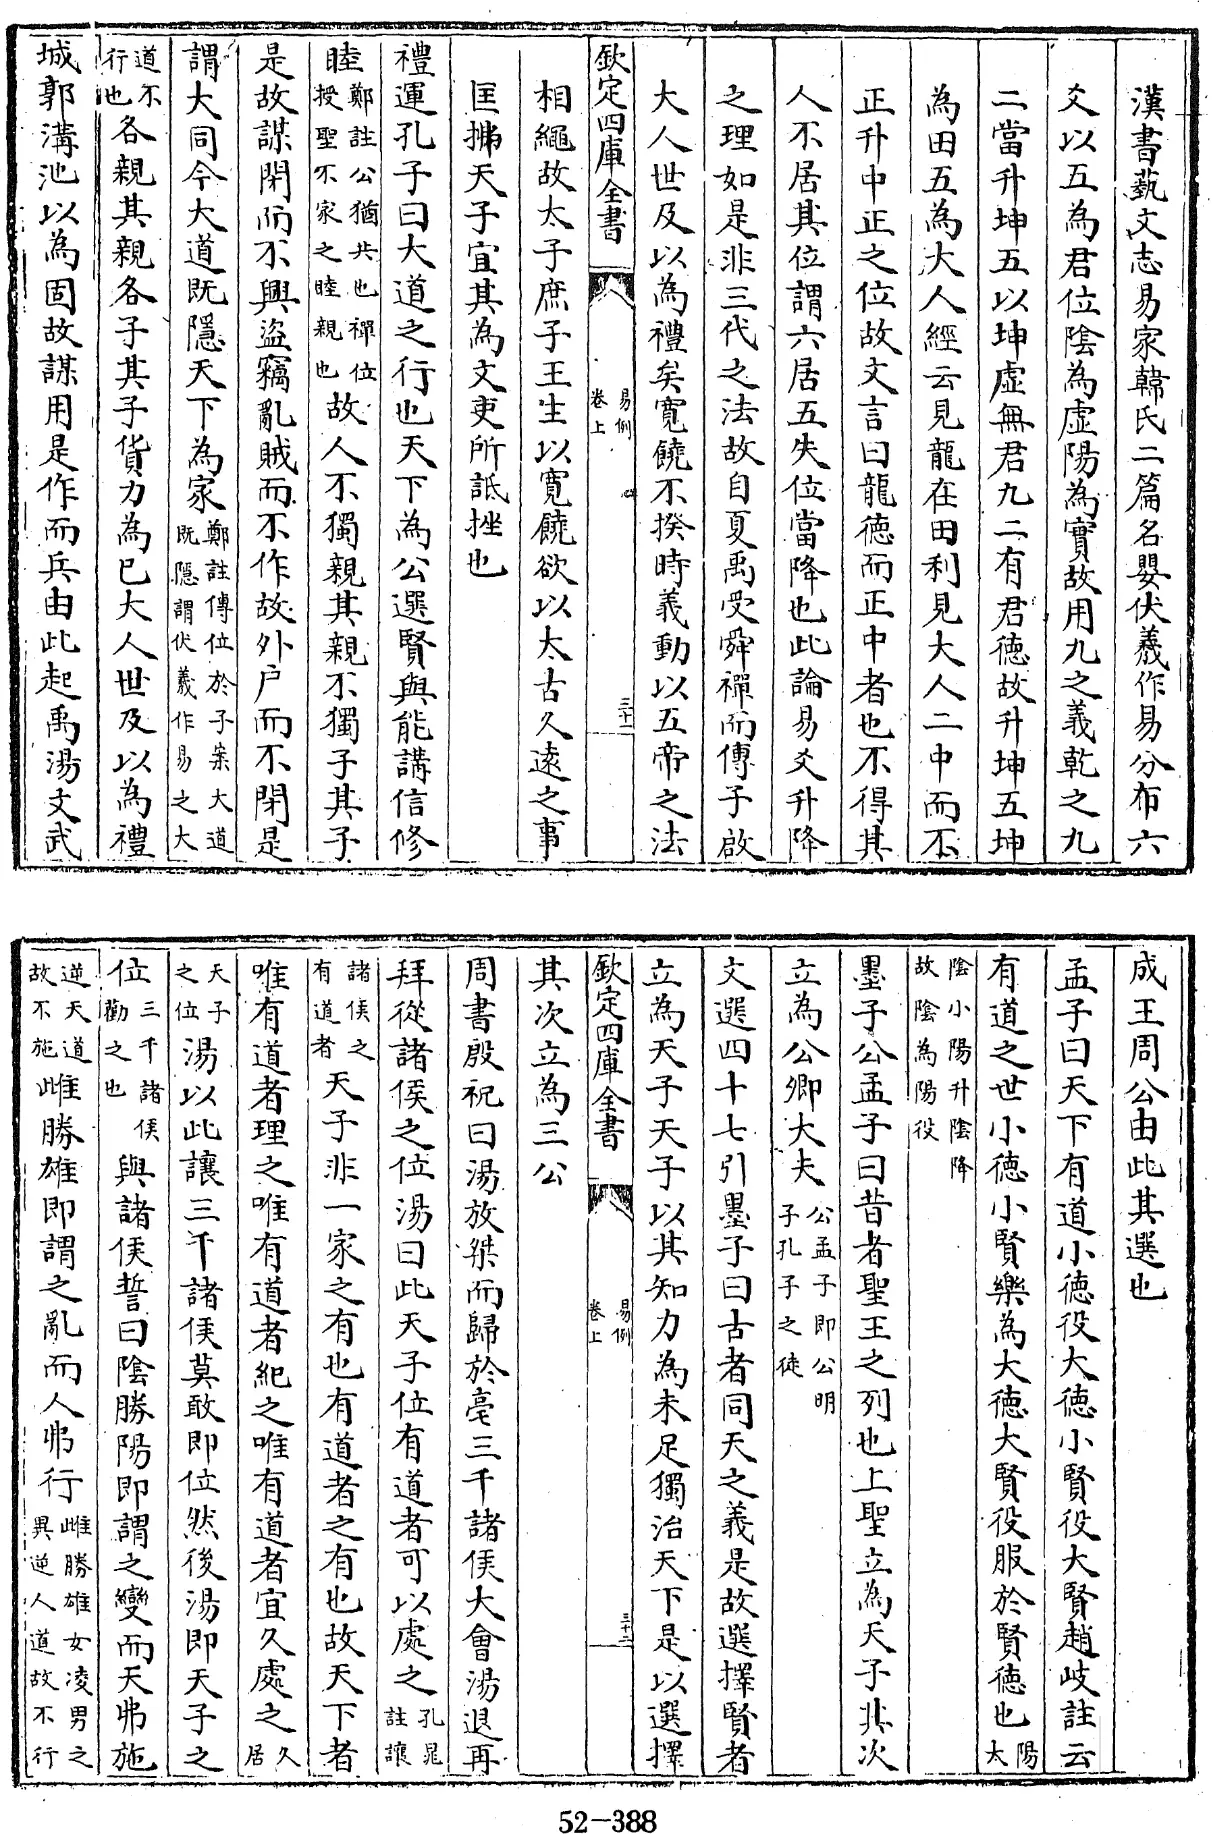 漢書藝文志易家韓氏二篇名嬰伏羲作易分布六
爻以五為君位陰為虛陽為實故用九之義乾之九
二當升坤五以坤虛無君九二有君德故升坤五坤
為田五為大人經云見龍在田利見大人二中而不
正升中正之位故文言曰龍德而正中者也不得其
人不居其位謂六居五失位當降也此論易爻升降
之理如是非三代之法故自夏禹受舜禪而傳子啟
大人世及以為禮矣寬饒不揆時義動以五帝之法
欽定四庫全書
易例
卷上
三十一
相繩故太子庶子王生以寬饒欲以太古久遠之事
匡拂天子宜其為文吏所詆挫也
禮運孔子曰大道之行也天下為公選賢與能講信修
睦鄭註公猶共也禪位授聖不家之睦親也故人不獨親其親不獨子其子
是故謀閉而不興盜竊亂賊而不作故外戶而不閉是
謂大同今大道既隱天下為家鄭註傳位於子案大道既隱謂伏羲作易之大
道不行也各親其親各子其子貨力為已大人世及以為禮
城郭溝池以為固故謀用是作而兵由此起禹湯文武
成王周公由此其選也
孟子曰天下有道小德役大德小賢役大賢趙岐註云
有道之世小德小賢樂為大德大賢役服於賢德也陽大
陰小陽升陰降故陰為陽役
墨子公孟子曰昔者聖王之列也上聖立為天子其次
立為公卿大夫公孟子即公明子孔子之徒
文選四十七引墨子曰古者同天之義是故選擇賢者
立為天子天子以其知力為未足獨治天下是以選擇
欽定四庫全書
易例
卷上
三十二
其次立為三公
周書殷祝曰湯放桀而歸於亳三千諸侯大會湯退再
拜從諸侯之位湯曰此天子位有道者可以處之孔晁註讓
諸侯之有道者天子非一家之有也有道者之有也故天下者
唯有道者理之唯有道者紀之唯有道者宜久處之久居
天子之位湯以此讓三千諸侯莫敢即位然後湯即天子之
位三千諸侯勸之也與諸侯誓曰陰勝陽即謂之變而天弗施
逆天道故不施雌勝雄即謂之亂而人弗行雌勝雄女凌男之異逆人道故不行
52-388